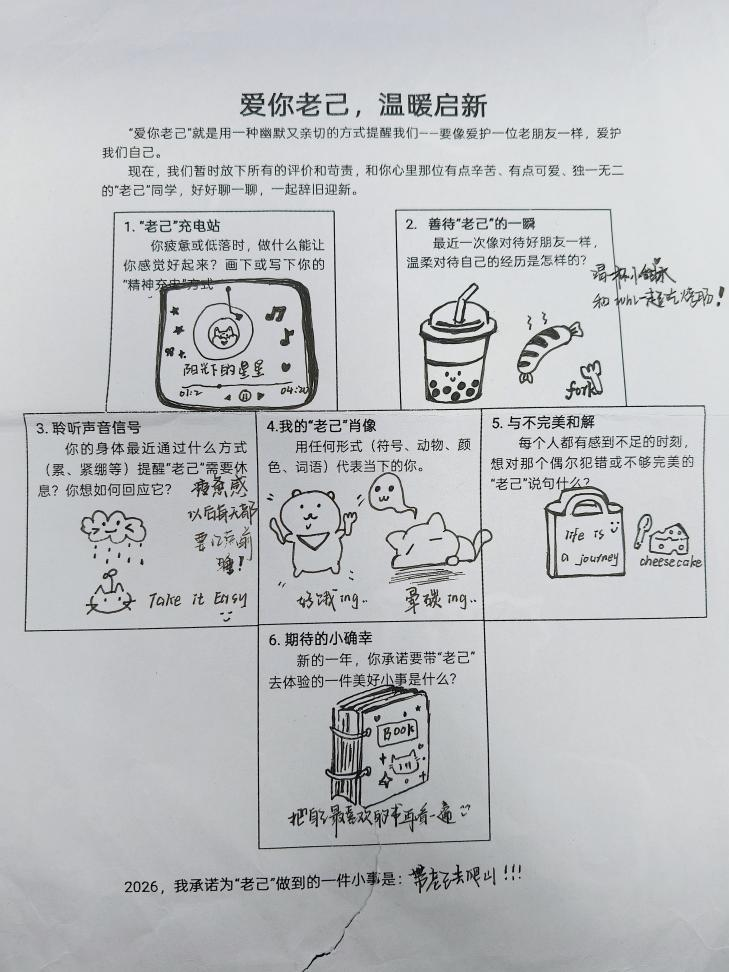 爱你老己，温暖启新
“爱你老己”就是用一种幽默又亲切的方式提醒我们——要像爱护一位老朋友一样，爱护
我们自己。
现在，我们暂时放下所有的评价和苛责，和你心里那位有点辛苦、有点可爱、独一无二
的“老己”同学，好好聊一聊，一起辞旧迎新。
1. “老己”充电站
你疲惫或低落时，做什么能让
你感觉好起来？画下或写下你的
“精神充电”方式
阳光下的星星
01:2
04:20
2. 善待“老己”的一瞬
最近一次像对待好朋友一样，
温柔对待自己的经历是怎样的？
喝一杯小甜水
和 一起去吃烤肠！
fork
3. 聆听声音信号
你的身体最近通过什么方式
（累、紧绷等）提醒“老己”需要休
息？你想如何回应它？
疲惫感
以后每天都
要12点前
睡！
Take it Easy
4.我的“老己”肖像
用任何形式（符号、动物、颜
色、词语）代表当下的你。
好饿ing..
晕碳ing..
5. 与不完美和解
每个人都有感到不足的时刻，
想对那个偶尔犯错或不够完美的
“老己”说句什么？
life is
a journey
cheesecake
6. 期待的小确幸
新的一年，你承诺要带“老己”
去体验的一件美好小事是什么？
BOOK
把自己最喜欢的书再看一遍
2026，我承诺为“老己”做到的一件小事是：带老己去爬山!!!